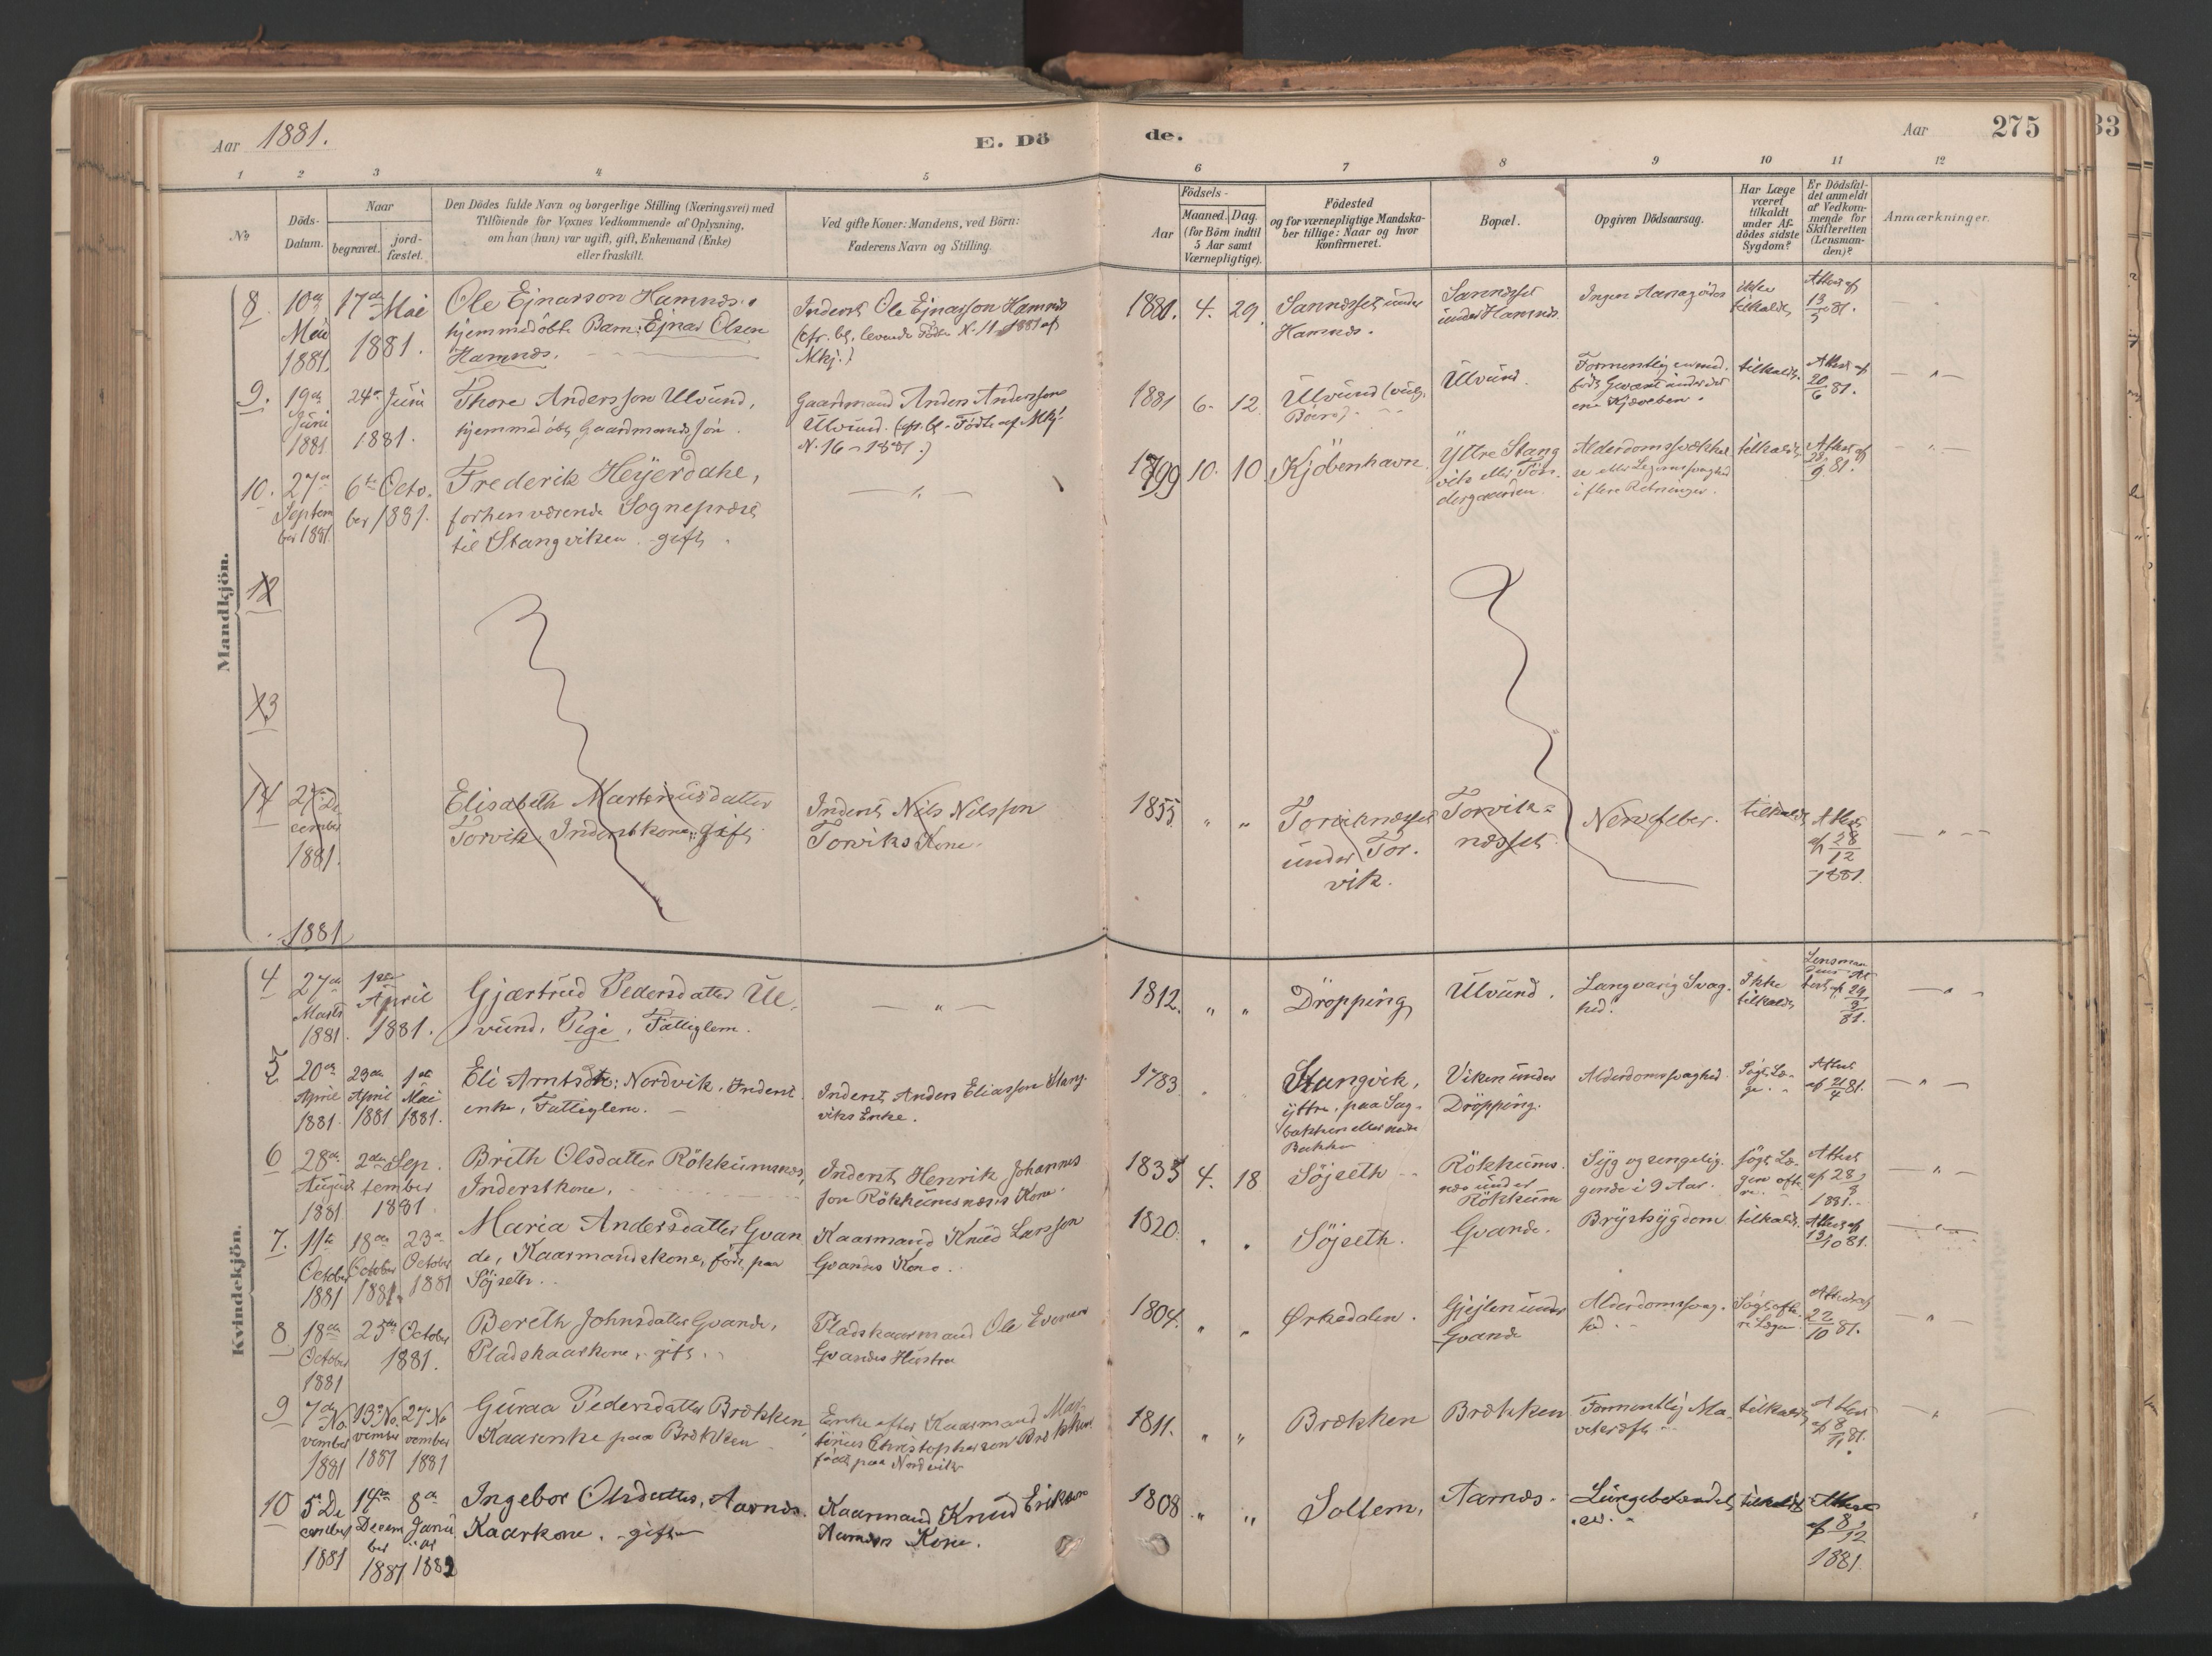 Aar 1881. E. Dö
de. Aar 275
33
1 2 3 4 5
6 7 8 9 10 11 12
No
Döds-
Datum.
Naar
begravet.
jord-
fæstet.
Den Dödes fulde Navn og borgerlige Stilling (Næringsvei) med
Tilföiende for Voxnes Vedkommende af Oplysning,
om han (hun) var ugift, gift, Enkemand (Enke)
eller fraskilt.
Ved gifte Koner: Mandens, ved Börn:
Faderens Navn og Stilling.
Födsels-
Aar
Maaned. Dag.
(for Börn indtil
5 Aar samt
Værnepligtige).
Födested
og for værnepligtige Mandska-
ber tillige: Naar og hvor
konfirmeret.
Bopæl.
Opgiven Dödsaarsag.
Har Læge
været
tilkaldt
under Af-
dödes sidste
Sygdom?
Er Dödsfal-
det anmeldt
af Vedkom-
mende for
Skifteretten
(Lensman-
den)?
Anmærkninger.
Mandkjön.
8.
10de
Mai
1881
17de Mai
1881.
Ole Ejnarson Hamnes.
hjemmedöbt Barn: Ejnar Olsen
Hamnæs.
Inderst Ole Ejnarsson Hamnes
(cfr. bl. levende Födte N. 11 - 1881 af
Mkj.)
1881. 4. 29.
Sannesset under
Hamnæs.
Sannesset
under Hamnæs.
Ingen Aarsag vides
ikke
tilkaldt
Attest af
13/5 81.
9.
19de
Juni
1881
24de Juni
1881.
Thore Andersson Ulvund,
hjemmedöbt Gaardmandssön.
Gaardmand Anders Anderssons
Ulvund. (cfr. bl. Födte af Mkj.
N. 16 - 1881.)
1881 6. 12.
Ulvund
Ulvund.
Formentlig en med-
födt
ene Kjæveben.
tilkaldt.
Attest af
20/6 81.
10.
27de
Septem
ber 1881.
6te Octo-
ber 1881.
Frederik Heyerdahl,
forhenværende Sognepræst
til Stangviken. gift.
1799 10. 10.
Kjöbenhavn.
Yttre Stang
vik eller Tön-
dergaarden.
Alderdomssvækkel-
se eller Legemssvaghed
i flere Retninger.
tilkaldt
Attest af
28/9 81.
12
13
14
27de De
cember
1881.
Elisabeth Martinusdatter
Torvik. Inderstkone; gift
Inderst Nils Nilsson
Torviks Kone.
1855 " "
Torviknæsset
under Tor-
vik.
Torvik-
næsset
Nervefeber.
tilkaldt
Attest
af 28/12
1881.
1881
Kvindekjön.
4
27de
Marts
1881.
1ste
April
1881.
Gjærtrud Pedersdatter Ul-
vund, Pige, Fattiglem.
1812. " "
Dröpping
Ulvund.
Langvarig Svag-
hed.
Ikke
tilkaldt
Lensman
dens At
test af 29/3
81.
5
20de
April
1881.
23de
April
1881
1ste
Mai
1881.
Eli Arntsdtr: Nordvik. Inderst-
enke, Fattiglem.
Inderst Anders Eliasson Stang-
viks Enke.
1783.
Stangvik,
yttre, paa Sag-
bakken eller nedre
Bakken
Viken under
Dröpping.
Alderdomssvaghed.
Sögt Læ-
ge.
Attest
af 21/4 81.
6
28de
August
1881
2den Sep-
tember
1881.
Brith Olsdatter Rökkumsnes,
Inderstkone.
Inderst Henrik Johannes
son Rökkumsnæsets Kone.
1835 4. 18
Söjseth
Rökkums-
næs under
Rökkum
Syg og sengelig-
gende i 9 Aar.
sögt Læ-
gen ofte-
re.
Attest
af 28/8
1881.
7.
11te
October
1881
18de
October
1881.
23de
October
1881
Maria Andersdatter Gvan
de, Kaarmandskone, födt paa
Söjseth.
Kaarmand Knud Larsson
Gvandes Kone.
1820.
Söjseth.
Gvande.
Brystsygdom
tilkaldt.
Attest af
13/10 81.
8
18de
October
1881
25de October
1881.
Bereth Johnsdatter Gvande,
Pladskaarkone, gift.
Pladskaarmand Ole Evensen
Gvandes Hustru
1804.
Ørkedalen.
Gjejlen under
Gvande
Alderdomssvag-
hed.
Sögt ofte-
re Lægen.
Attest af
22/10 81.
9
7de No
vember
1881
13de No
vember
1881
27de No
vember
1881
Guraa Pedersdatter Brækken,
Kaarenke paa Brækken
Enke efter Kaarmand Mar-
tinus Christophersen Brækken
födt paa Nordvik
1811. " "
Brækken
Brækken
Formentlig Ma-
vekræft
tilkaldt
Attest
af 8/11 81.
10
5te De
cember
1881
14de
Decem
ber
1881
8de
Janu
ar
1882
Ingebor Olsdatter, Aarnes.
Kaarkone. gift
Kaarmand Knud Eriksen
Aarnæs Kone.
1808 " "
Soltem.
Aarnæs.
Lungebetændel-
se.
tilkaldt
Attest
af 8/12
1881.